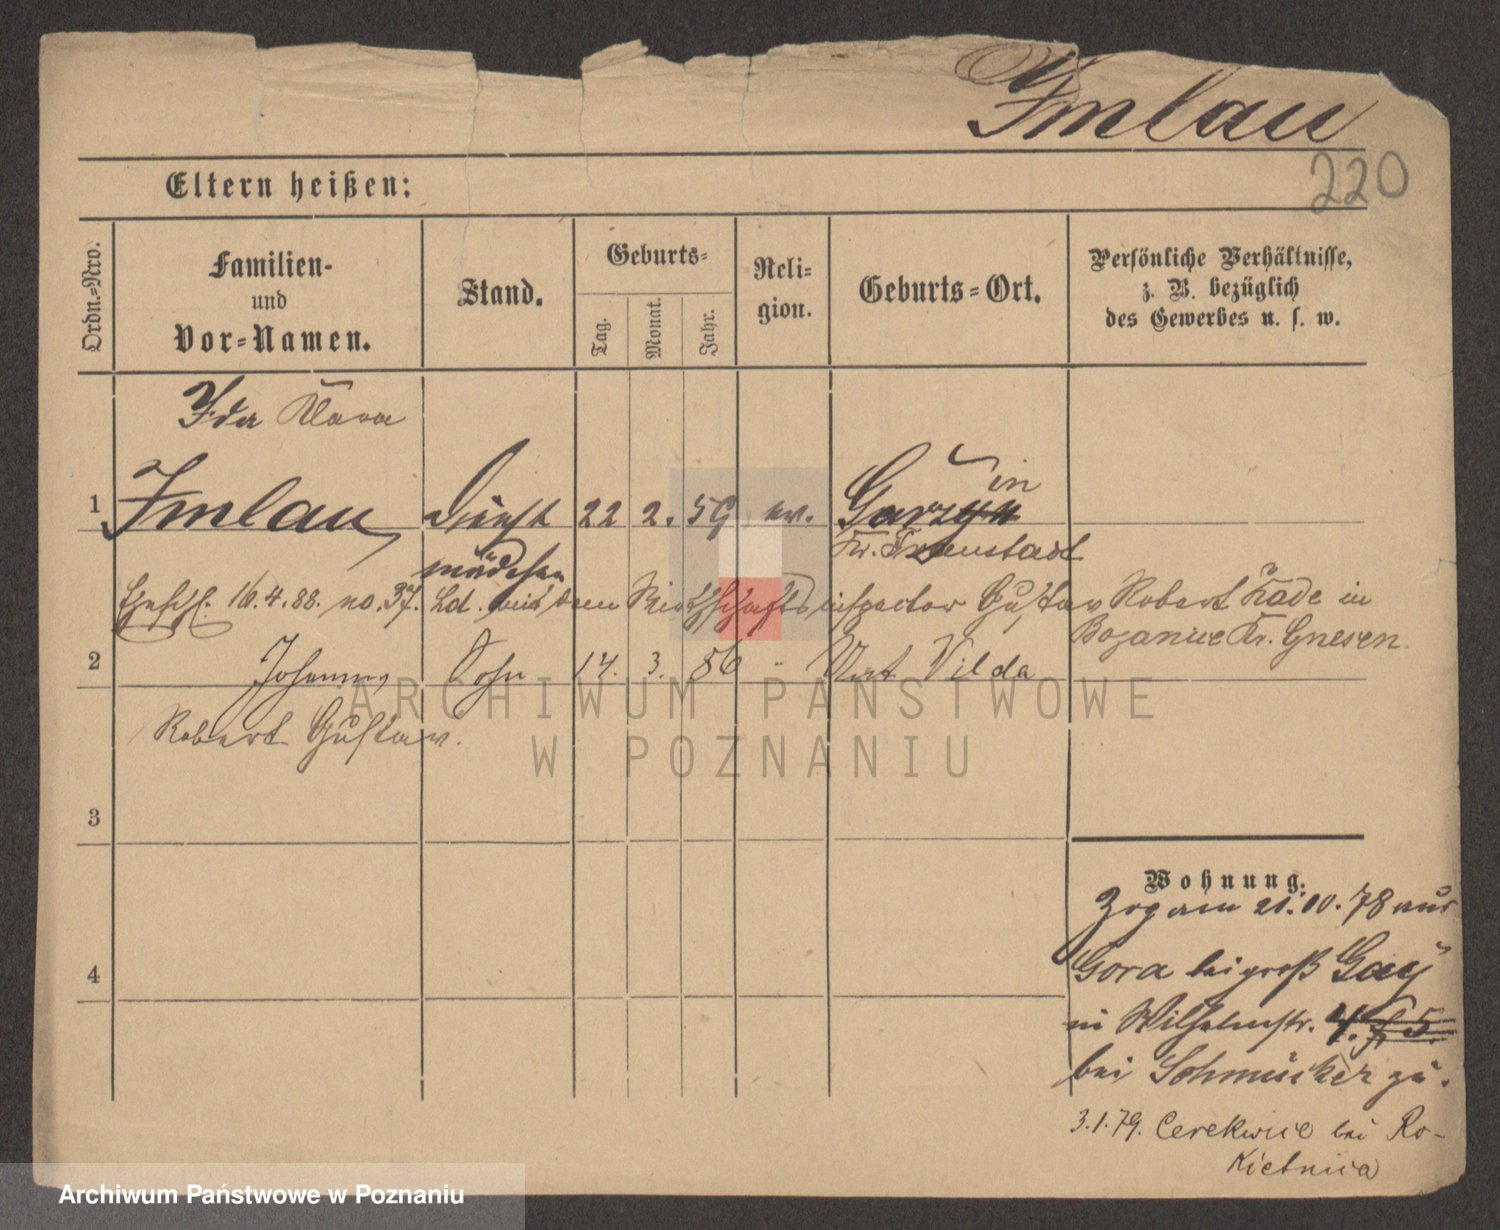 Imlau
220
Eltern heißen:
Ordn.-Nro.
Familien-
und
Vor-Namen.
Stand.
Geburts-
Tag.
Monat.
Jahr.
Reli-
gion.
Geburts-Ort.
Persönliche Verhältnisse,
z. B. bezüglich
des Gewerbes u. s. w.
Ida Klara
1 Imlau Dienst 22 2. 59 ev. Garzyn in
mädchen Kr. Fraustadt
Eheschl. 16.4.88. no. 37. Ld. mit dem Wirthschaftsinspector Gustav Robert Kade in
Bozanice Kr. Gnesen.
2 Johannes Sohn 14. 3. 86 " Unt. Wilda
Robert Gustav.
3
4
Wohnung.
Zog am 21.10.78 aus
Gora bei groß Gay
in Wilhelmstr. 4.
bei Schmücker zu.
3.1.79. Cerekwice bei Ro-
kietnica
ARCHIWUM PAŃSTWOWE
W POZNANIU
Archiwum Państwowe w Poznaniu